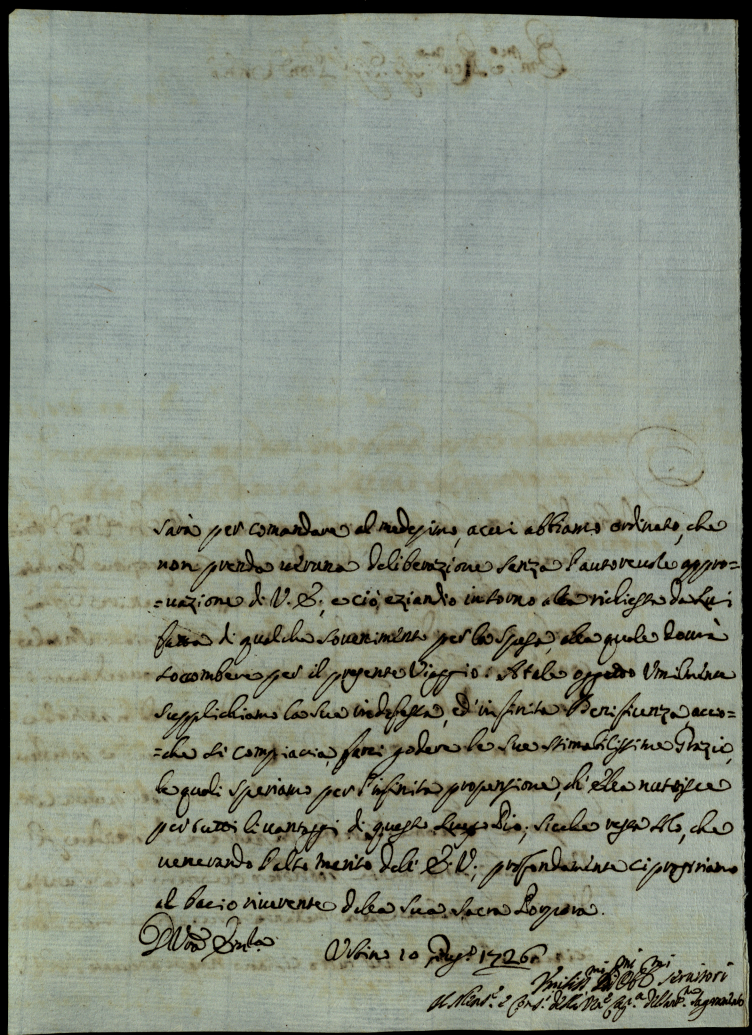 sarà per comandare al medesimo, acui abbiamo ordinato, che
non prenda veruna deliberazione senza l'autorevole appro=
=uazione di V. E:, e ciò eziandio intorno alla richiesta da Lui
fatta di qualche souenimento per la spesa, alla quale dourà
soccombere per il presente Viaggio: A tale oggetto Umilmente
supplichiamo la sua indefessa, ed' infinita Beneficenza, accio=
=che si compiaccia farci godere le sue stimabilissime Grazie,
le quali speriamo per l'infinita propensione, ch' ella nutrisce
per tutti li uantaggi di questo Luogo Pio; sicche resta solo, che
uenerando l'alto merito dell' E. V:, profondamente ci prostriamo
al bacio riuerente della sua Sacra Porpora.
D V:ra Em:za
Urbino 10 1726
Umiliss:mi Ob:mi seruitori